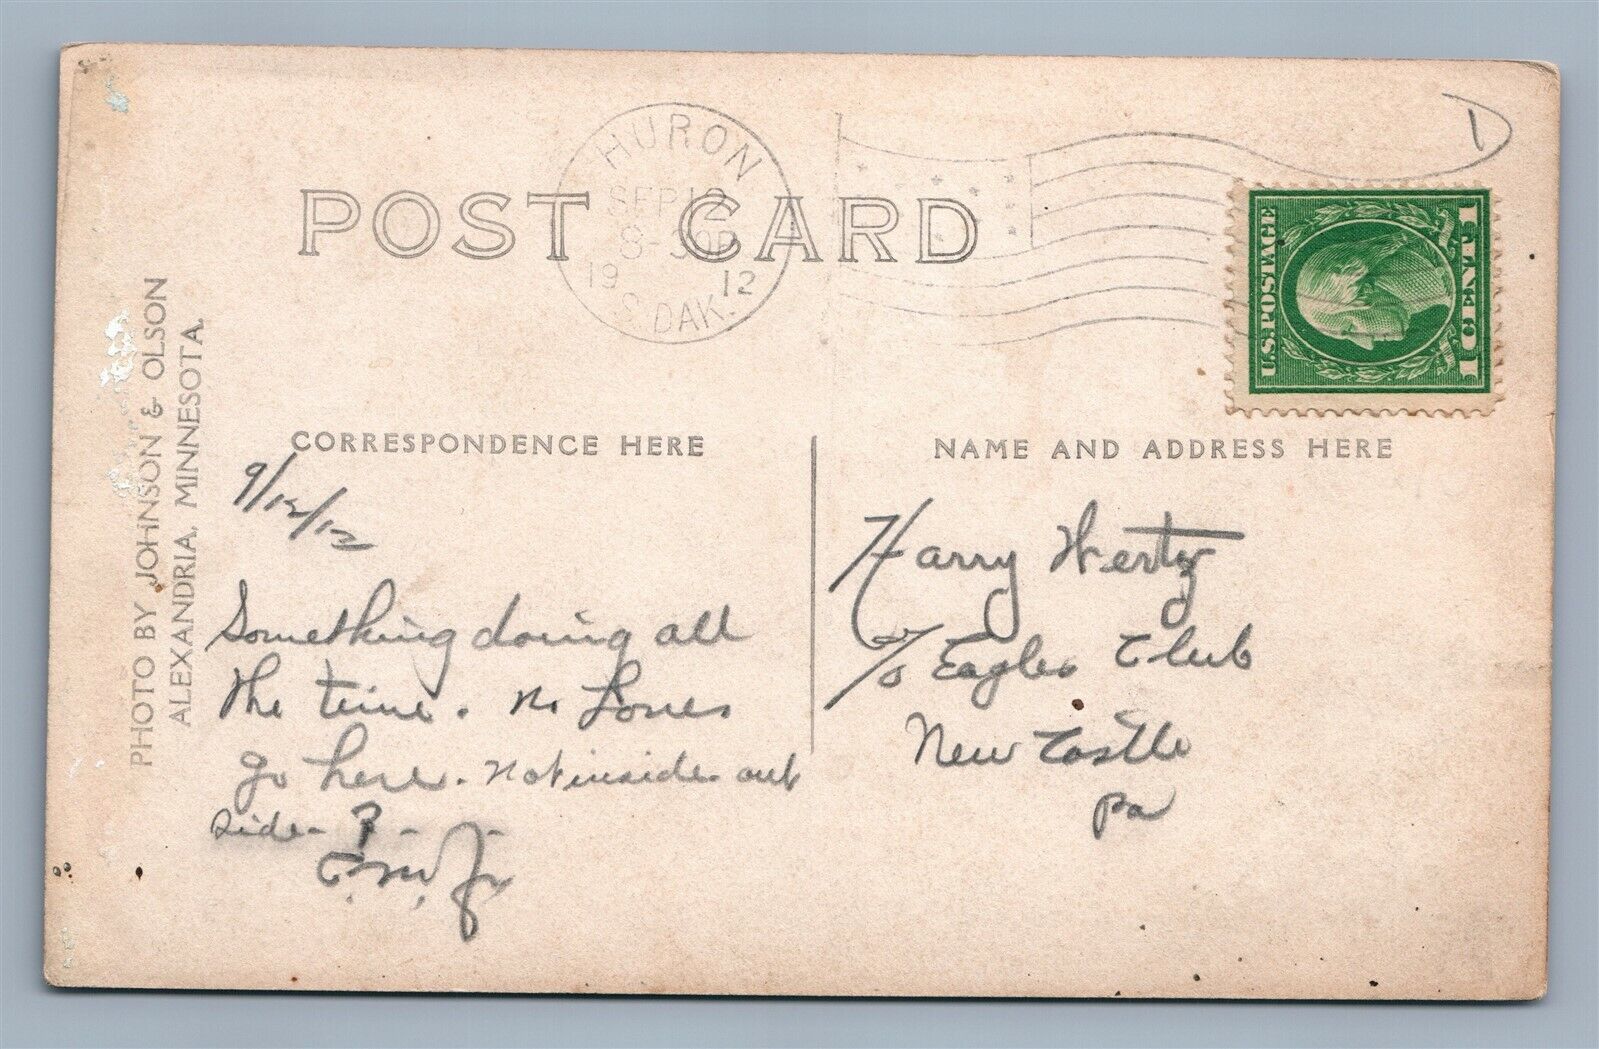 POST CARD
HURON
SEP 12
8-30P
19 12
S. DAK.
U.S. POSTAGE
1 CENT 1
PHOTO BY JOHNSON & OLSON
ALEXANDRIA, MINNESOTA.
CORRESPONDENCE HERE
9/12/12
Something doing all
the time. no
go here. not inside. out
side - ? - -
NAME AND ADDRESS HERE
Harry Hertz
c/o Eagles Club
New Castle
Pa